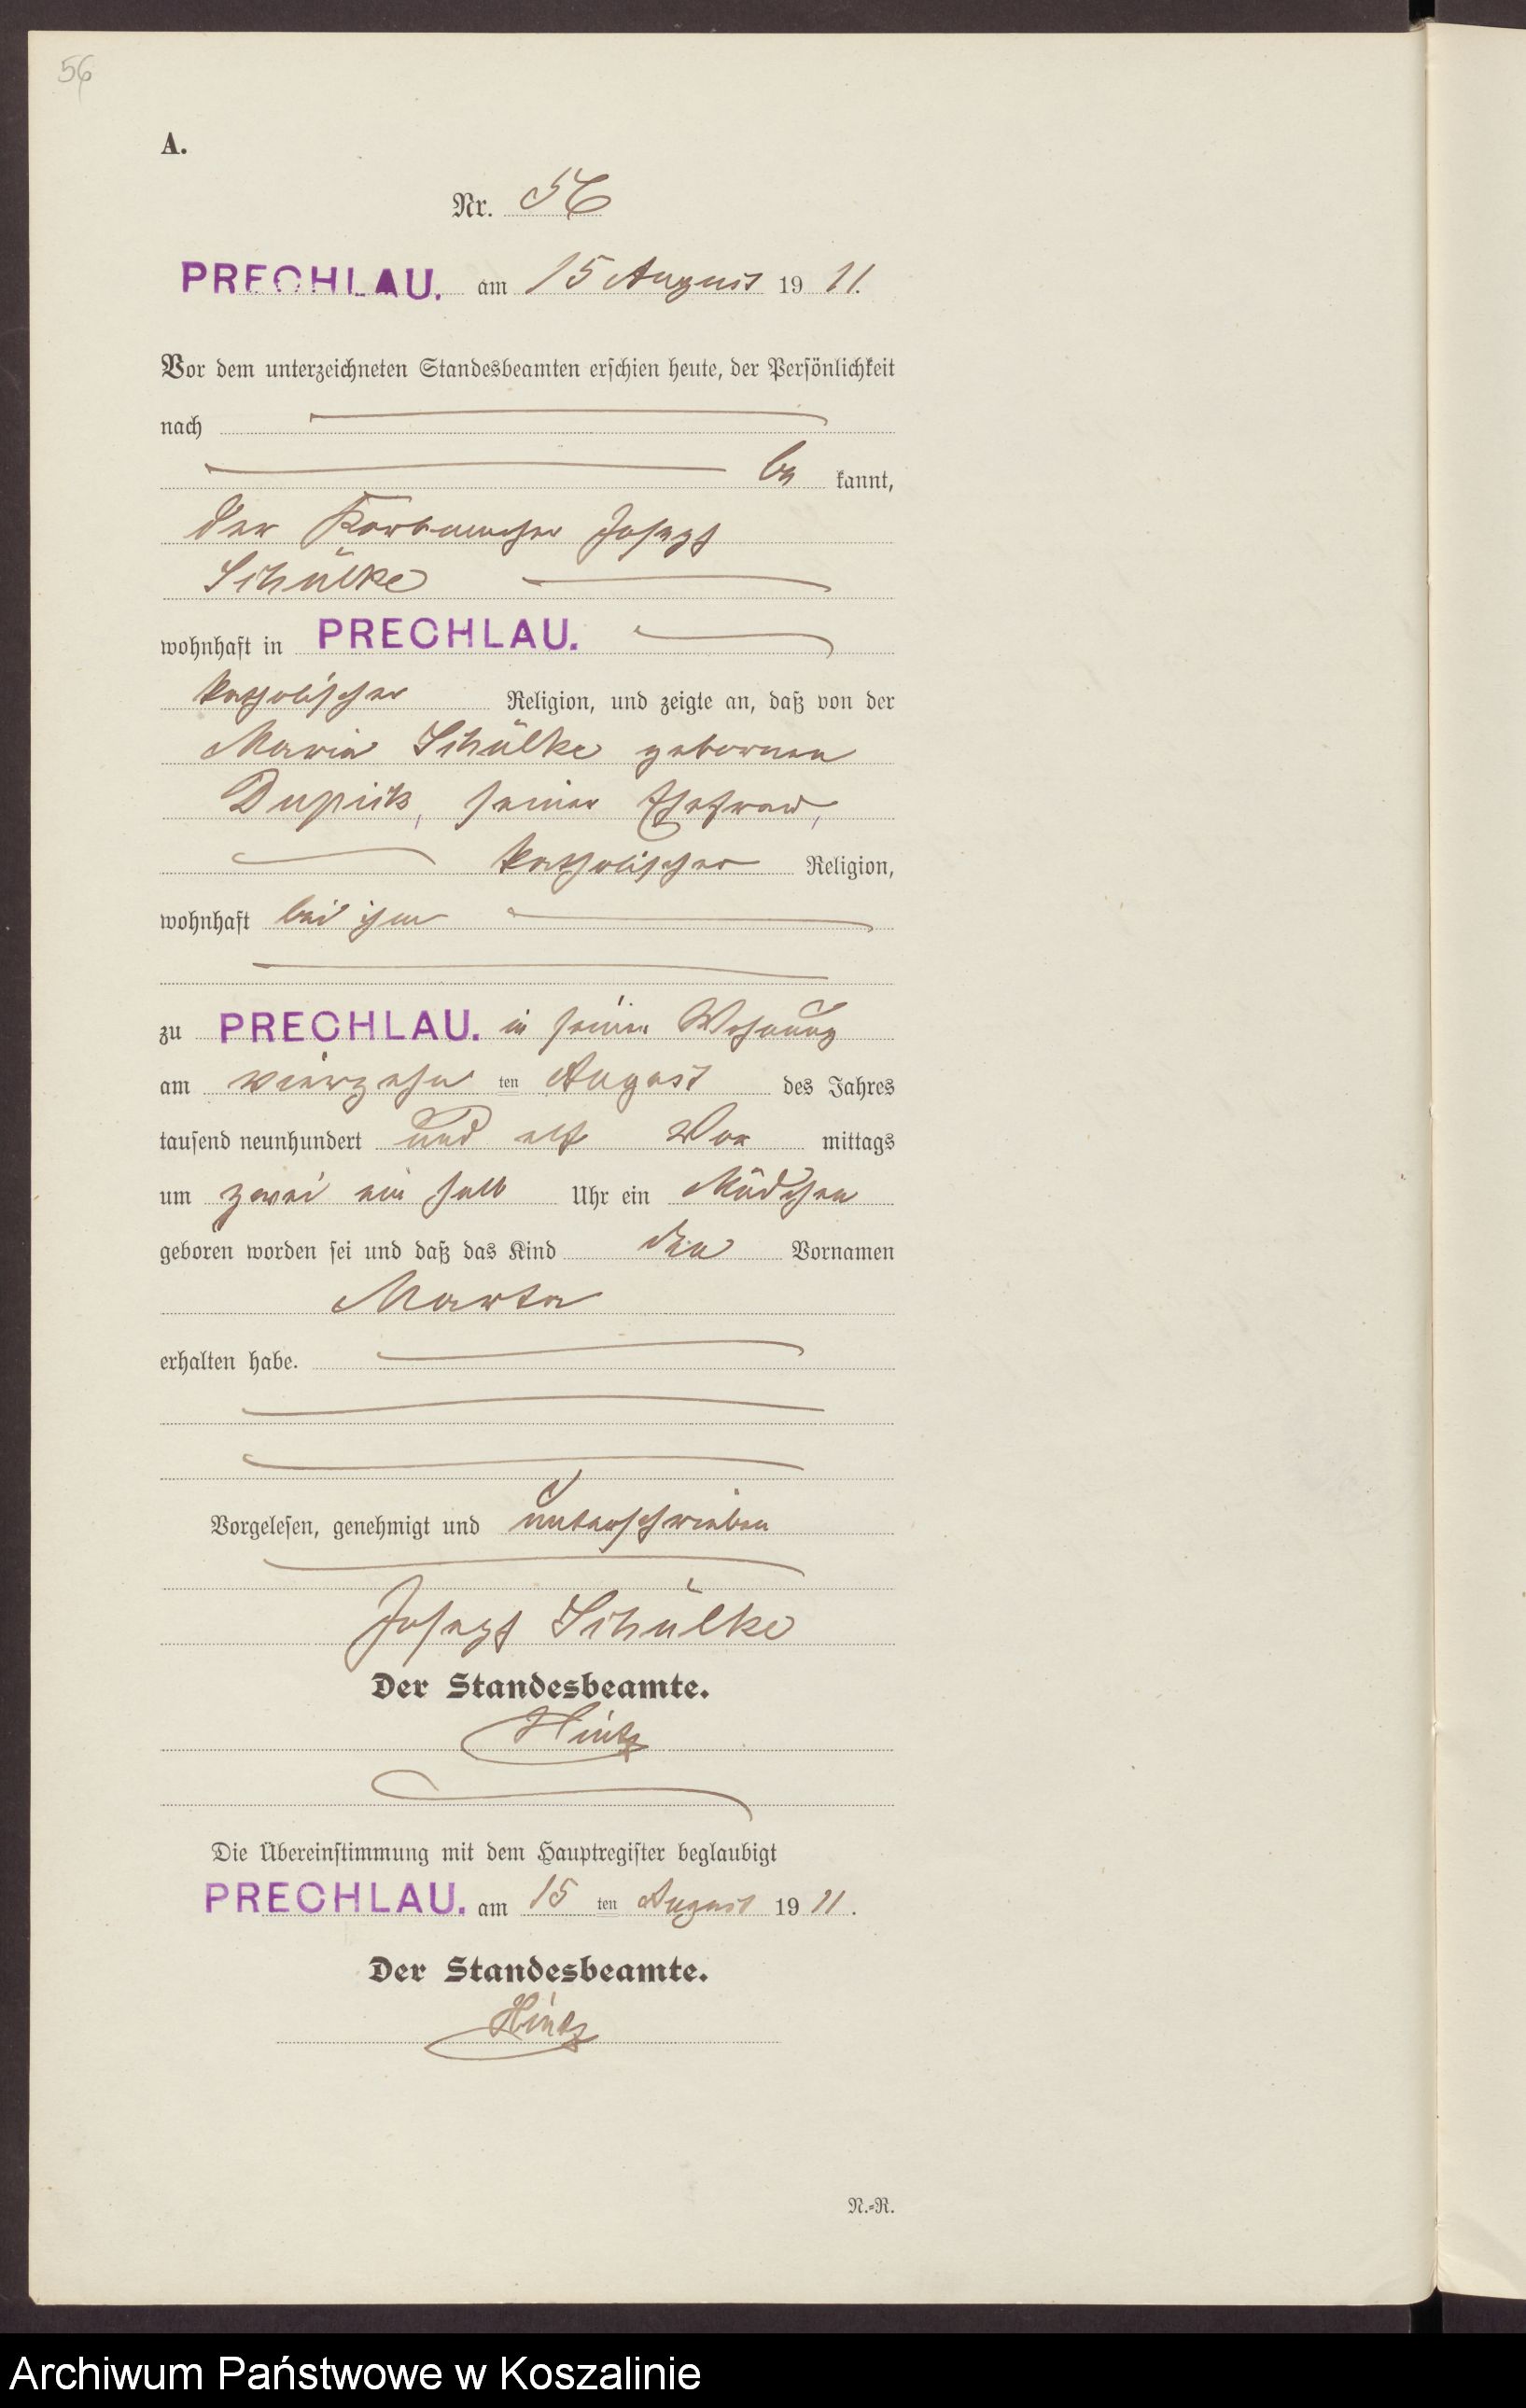 56
A.
Nr. 56
PRECHLAU. am 15 August 19 11.
Vor dem unterzeichneten Standesbeamten erschien heute, der Persönlichkeit
nach
be kannt,
der Korbmacher Joseph
Schülke
wohnhaft in PRECHLAU.
katholischer Religion, und zeigte an, daß von der
Maria Schülke gebornen
seiner Ehefrau,
katholischer Religion,
wohnhaft bei ihm
zu PRECHLAU. in seiner Wohnung
am vierzehn ten August des Jahres
tausend neunhundert und elf Vor mittags
um zwei ein halb Uhr ein Mädchen
geboren worden sei und daß das Kind den Vornamen
Marta
erhalten habe.
Vorgelesen, genehmigt und unterschrieben
Joseph Schülke
Der Standesbeamte.
Hintz
Die Übereinstimmung mit dem Hauptregister beglaubigt
PRECHLAU. am 15 ten August 19 11.
Der Standesbeamte.
Hintz
N.=R.
Archiwum Państwowe w Koszalinie